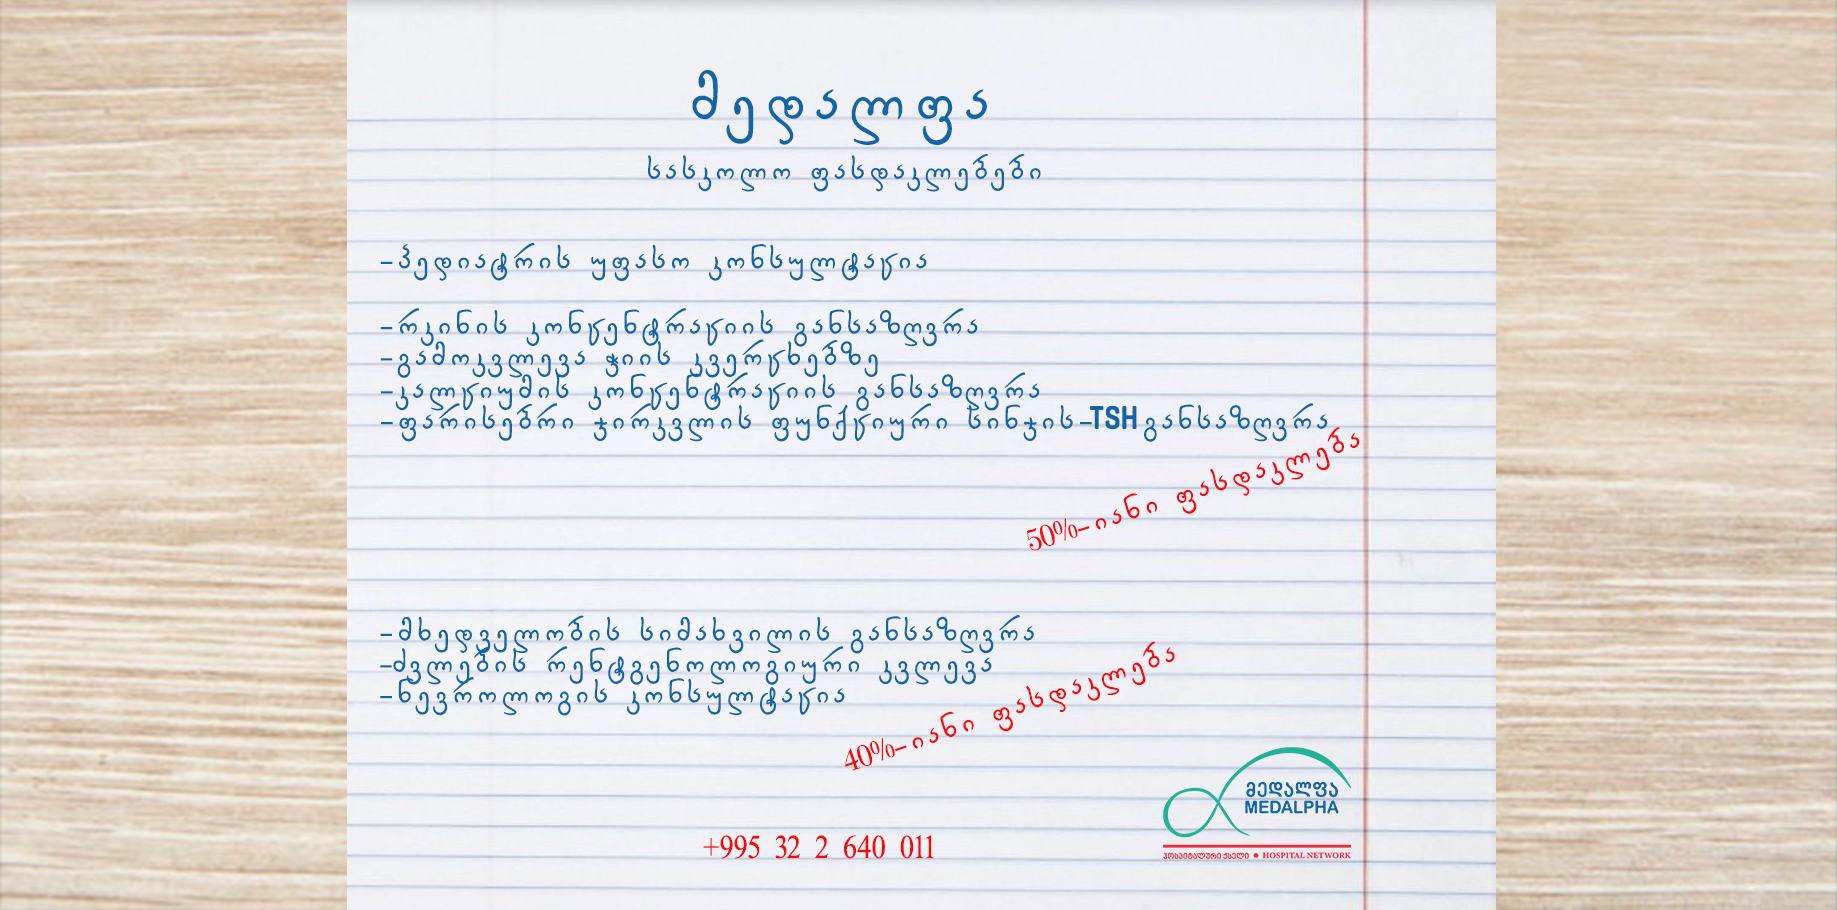 მედალფა
სასკოლო ფასდაკლებები
-პედიატრის უფასო კონსულტაცია
-რკინის კონცენტრაციის განსაზღვრა
-გამოკვლევა ჭიის კვერცხებზე
-კალციუმის კონცენტრაციის განსაზღვრა
-ფარისებრი ჯირკვლის ფუნქციური სინჯის-TSH განსაზღვრა
50%-იანი ფასდაკლება
-მხედველობის სიმახვილის განსაზღვრა
-ძვლების რენტგენოლოგიური კვლევა
-ნევროლოგის კონსულტაცია
40%-იანი ფასდაკლება
მედალფა
MEDALPHA
+995 32 2 640 011
ჰოსპიტალური ქსელი • HOSPITAL NETWORK